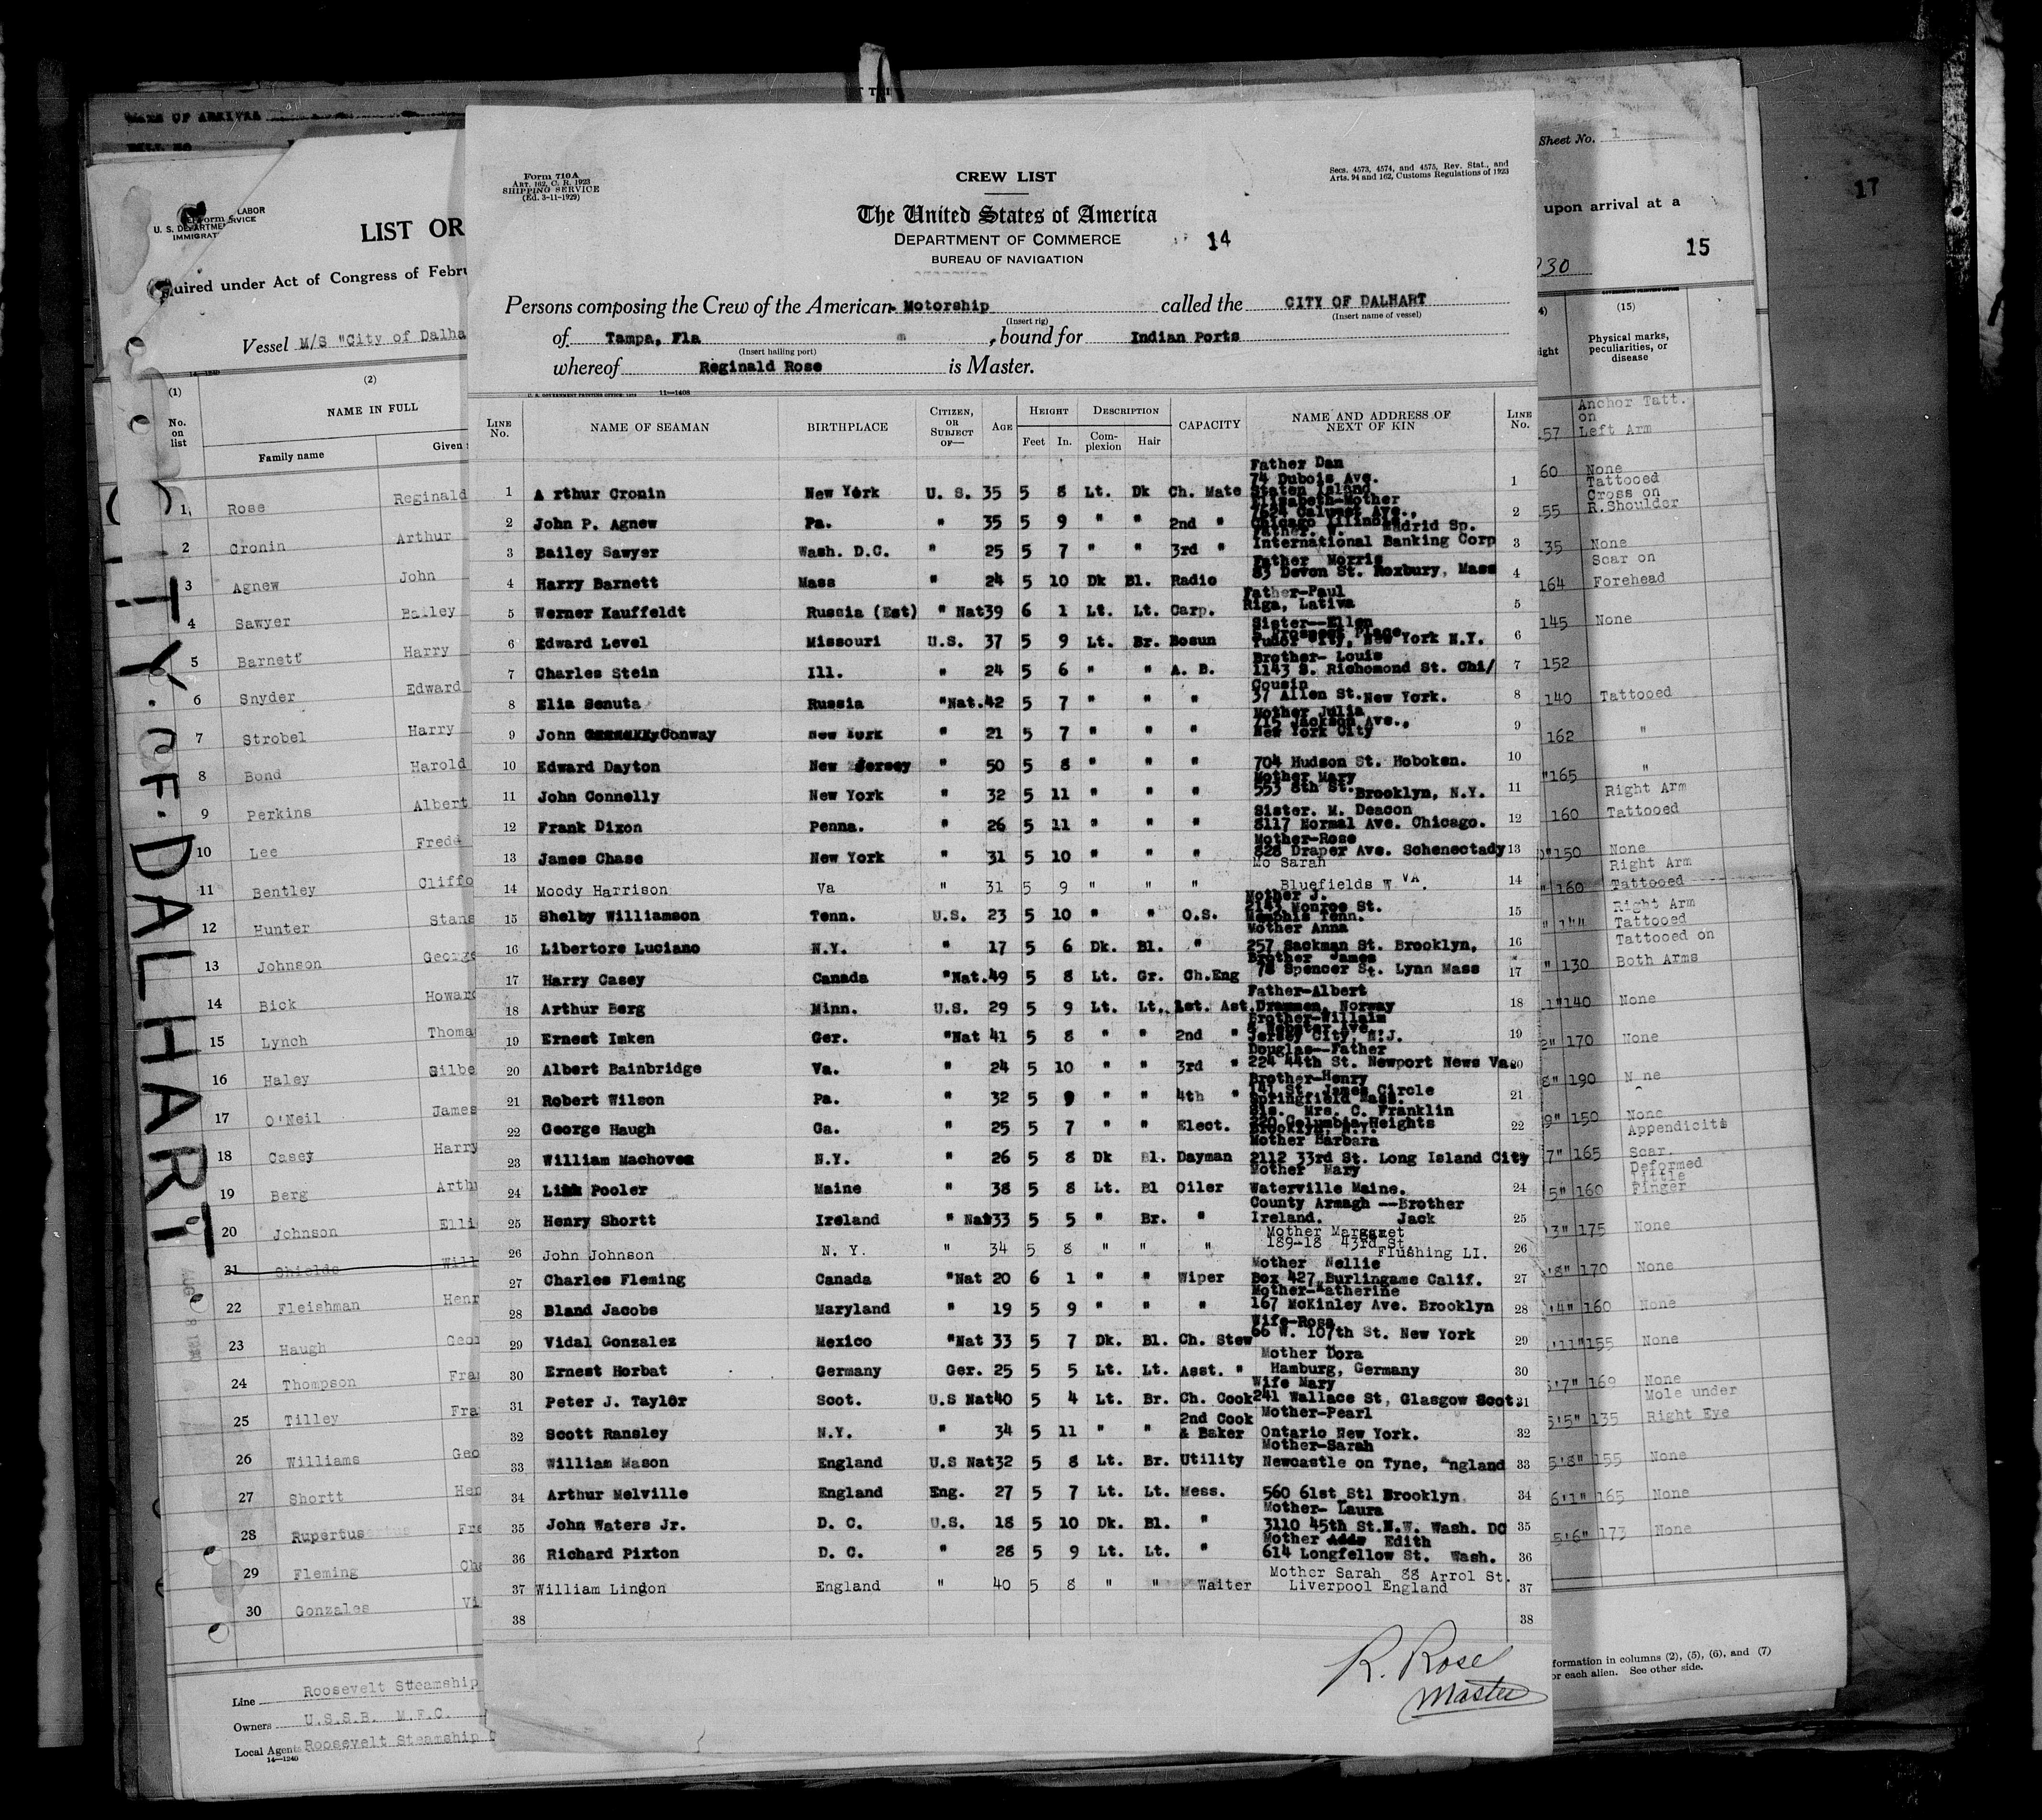 Form 710A
ART. 162, C. R. 1923
SHIPPING SERVICE
(Ed. 3-11-1929)
CREW LIST
Secs. 4573, 4574, and 4575, Rev. Stat., and
Arts. 94 and 162, Customs Regulations of 1923
The United States of America
DEPARTMENT OF COMMERCE
14
BUREAU OF NAVIGATION
Persons composing the Crew of the American Motorship called the CITY OF DALHART
(Insert rig) (Insert name of vessel)
of Tampa, Fla , bound for Indian Ports
(Insert hailing port)
whereof Reginald Rose is Master.
11—1408
LINE No. NAME OF SEAMAN BIRTHPLACE CITIZEN, OR SUBJECT OF— AGE HEIGHT Feet In. DESCRIPTION Complexion Hair CAPACITY NAME AND ADDRESS OF NEXT OF KIN LINE No.
Father Dan
74 Dubois Ave.
1 A rthur Cronin New York U. S. 35 5 8 Lt. Dk Ch. Mate Staten Island 1
Elizabeth-Mother
7624 Calumet Ave.,
2 John P. Agnew Pa. " 35 5 9 " " 2nd " Chicago Illinois 2
Father. W. Madrid Sp.
3 Bailey Sawyer Wash. D.C. " 25 5 7 " " 3rd " International Banking Corp 3
Father Morris
4 Harry Barnett Mass " 24 5 10 Dk Bl. Radio 83 Devon St. Roxbury, Mass 4
Father-Paul
5 Werner Kauffeldt Russia (Est) " Nat39 6 1 Lt. Lt. Carp. Riga, Lativa 5
Sister--Ellen
5 Prospect Place
6 Edward Level Missouri U.S. 37 5 9 Lt. Br. Bosun Tudor City, New York N.Y. 6
Brother- Louis
7 Charles Stein Ill. " 24 5 6 " " A. B. 1143 S. Richomond St. Chi/ 7
Cousin
8 Elia Senuta Russia "Nat.42 5 7 " " " 37 Allen St. New York. 8
Mother Julia
715 Jackson Ave.,
9 John Conway New York " 21 5 7 " " " New York City 9
10 Edward Dayton New Jersey " 50 5 8 " " " 704 Hudson St. Hoboken. 10
Mother Mary
11 John Connelly New York " 32 5 11 " " " 553 8th St. Brooklyn, N.Y. 11
Sister. M. Deacon
12 Frank Dixon Penna. " 26 5 11 " " " 8117 Normal Ave. Chicago. 12
Mother-Rose
13 James Chase New York " 31 5 10 " " " 828 Draper Ave. Schenectady 13
Mo Sarah
14 Moody Harrison Va " 31 5 9 " " " Bluefields W VA. 14
Mother J.
2143 Monroe St.
15 Shelby Williamson Tenn. U.S. 23 5 10 " " O.S. Memphis Tenn. 15
Mother Anna
16 Libertore Luciano N.Y. " 17 5 6 Dk. Bl. " 257 Sackman St. Brooklyn, 16
Brother James
17 Harry Casey Canada "Nat.49 5 8 Lt. Gr. Ch.Eng 78 Spencer St. Lynn Mass 17
Father-Albert
18 Arthur Berg Minn. U.S. 29 5 9 Lt. Lt. 1st. Ast. Drammen, Norway 18
Brother-Willaim
8 Webster Ave.
19 Ernest Imken Ger. "Nat 41 5 8 " " 2nd " Jersey City, N.J. 19
Douglas--Father
20 Albert Bainbridge Va. " 24 5 10 " " 3rd " 224 44th St. Newport News Va. 20
Brother-Henry
141 St. James Circle
21 Robert Wilson Pa. " 32 5 9 " " 4th " Springfield Mass. 21
Sis. Mrs. C. Franklin
220 Columbia Heights
22 George Haugh Ga. " 25 5 7 " " Elect. Brooklyn, N.Y. 22
Mother Barbara
23 William Machovea N.Y. " 26 5 8 Dk Bl. Dayman 2112 33rd St. Long Island City
Mother Mary
24 Link Pooler Maine " 38 5 8 Lt. Bl Oiler Waterville Maine. 24
County Armagh --Brother
25 Henry Shortt Ireland " Nat33 5 5 " Br. " Ireland. Jack 25
Mother Margaret
189-18 43rd St.
26 John Johnson N. Y. " 34 5 8 " " " Flushing LI. 26
Mother Nellie
27 Charles Fleming Canada "Nat 20 6 1 " " Wiper Box 427 Burlingame Calif. 27
Mother-Katherine
28 Bland Jacobs Maryland " 19 5 9 " " " 167 McKinley Ave. Brooklyn 28
Wife-Rosa
29 Vidal Gonzalez Mexico "Nat 33 5 7 Dk. Bl. Ch. Stew 66 W. 107th St. New York 29
Mother Dora
30 Ernest Horbat Germany Ger. 25 5 5 Lt. Lt. Asst. " Hamburg, Germany 30
Wife Mary
31 Peter J. Taylor Scot. U.S Nat40 5 4 Lt. Br. Ch. Cook 241 Wallace St, Glasgow Scot. 31
2nd Cook Mother-Pearl
32 Scott Ransley N.Y. " 34 5 11 " " & Baker Ontario New York. 32
Mother-Sarah
33 William Mason England U.S Nat32 5 8 Lt. Br. Utility Newcastle on Tyne, England 33
34 Arthur Melville England Eng. 27 5 7 Lt. Lt. Mess. 560 61st Stl Brooklyn 34
Mother- Laura
35 John Waters Jr. D. C. U.S. 18 5 10 Dk. Bl. " 3110 45th St.N.W. Wash. DC 35
Mother Edith
36 Richard Pixton D. C. " 28 5 9 Lt. Lt. " 614 Longfellow St. Wash. 36
Mother Sarah 88 Arrol St.
37 William Lingon England " 40 5 8 " " Waiter Liverpool England 37
38 38
R. Rose
Master
LABOR
U. S. DEPARTMENT
IMMIGRAT
LIST OR
quired under Act of Congress of Febru
Vessel M/S "City of Dalha
14-1240
(1) (2)
No. on list NAME IN FULL
Family name Given
1 Rose Reginald
2 Cronin Arthur
3 Agnew John
4 Sawyer Bailey
5 Barnett Harry
6 Snyder Edward
7 Strobel Harry
8 Bond Harold
9 Perkins Albert
10 Lee Frede
11 Bentley Cliffo
12 Hunter Stans
13 Johnson George
14 Bick Howard
15 Lynch Thoma
16 Haley Gilbe
17 O'Neil James
18 Casey Harry
19 Berg Arthu
20 Johnson Elli
21 Shields Will
22 Fleishman Henr
23 Haugh Geor
24 Thompson Fra
25 Tilley Fra
26 Williams Geo
27 Shortt Hen
28 Rupertus Fre
29 Fleming Cha
30 Gonzales Vi
Line Roosevelt Steamship
Owners U.S.S.B. M.F.C.
Local Agents Roosevelt Steamship
14—1240
CITY.OF.DALHART
Sheet No. 1
17
upon arrival at a
15
930
(15)
Physical marks, peculiarities, or disease
Anchor Tatt.
on
157 Left Arm
60 None
Tattooed
Cross on
155 R.Shoulder
135 None
Scar on
164 Forehead
145 None
152
140 Tattooed
162 "
165 "
Right Arm
160 Tattooed
150 None
Right Arm
160 Tattooed
Right Arm
144 Tattooed
Tattooed on
130 Both Arms
140 None
170 None
190 N ne
9" 150 None
Appendicitis
7" 165 Scar.
Deformed
Little
5" 160 Finger
'3" 175 None
'8" 170 None
'4" 160 None
'11" 155 None
5'7" 169 None
Mole under
5'5" 135 Right Eye
5'8" 155 None
6'1" 165 None
5'6" 173 None
formation in columns (2), (5), (6), and (7)
or each alien. See other side.